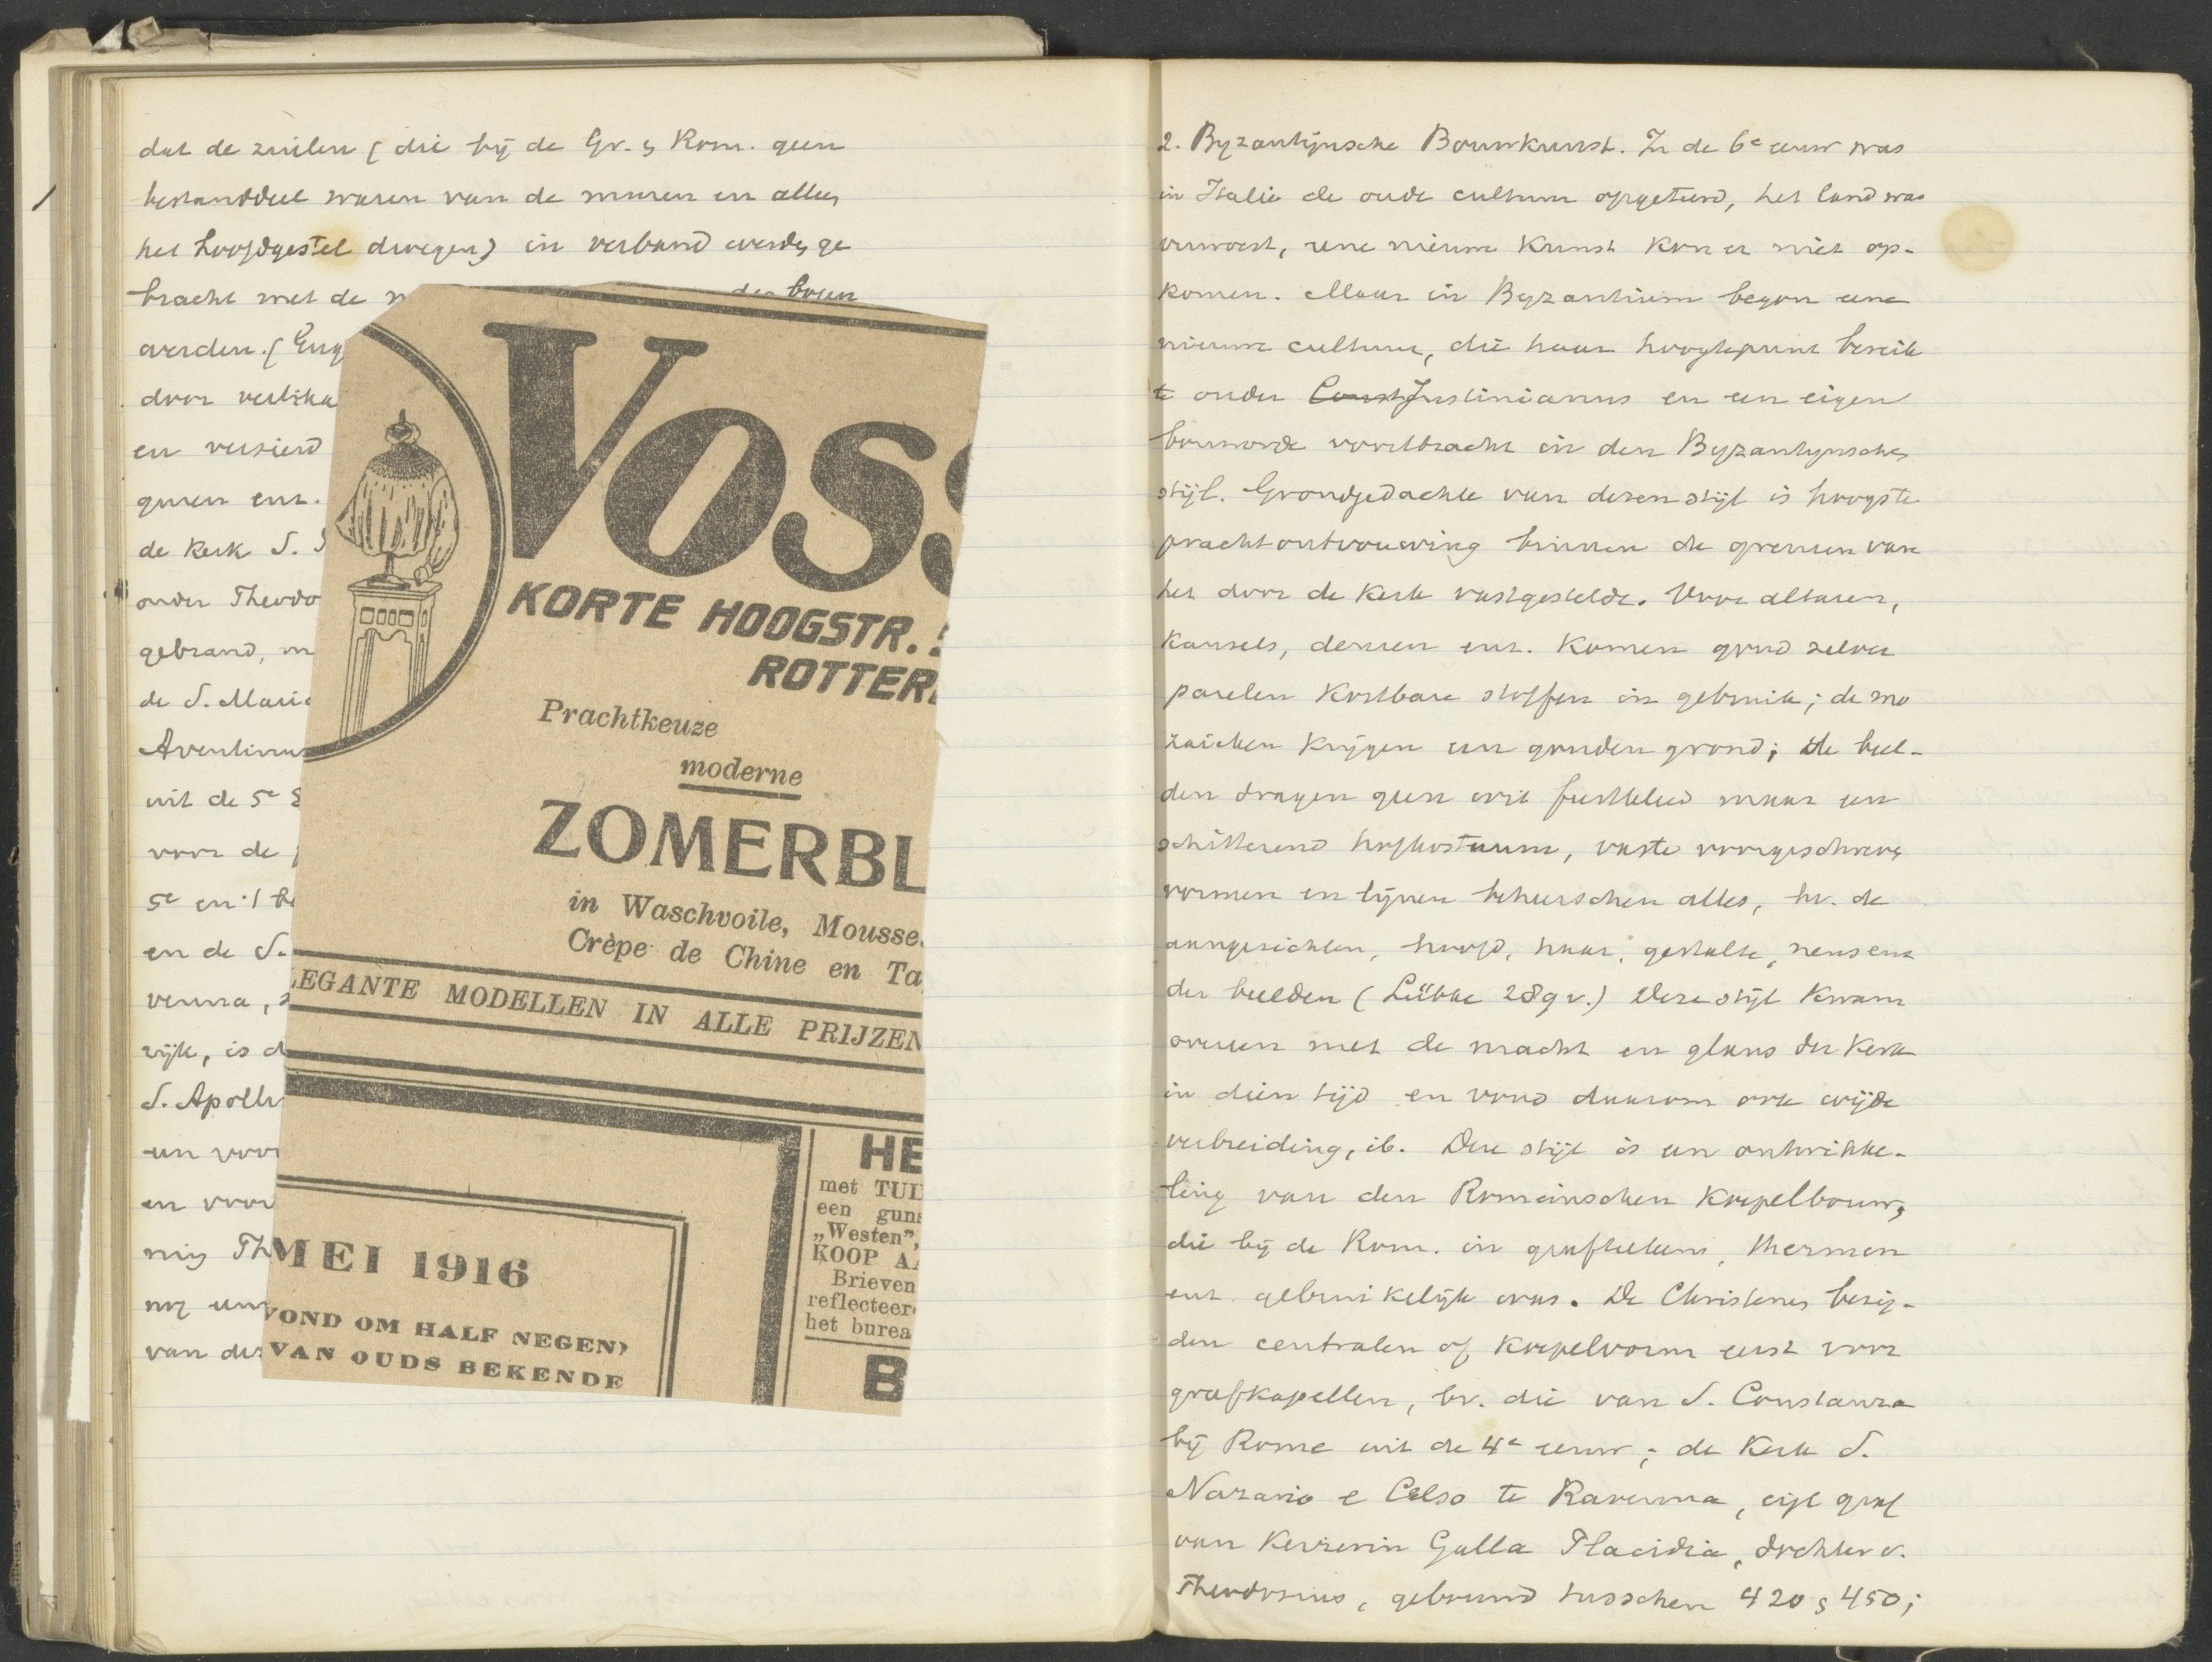 dat de zuilen (die bij de Gr. & Rom. geen
bestanddeel waren van de muren en alleen
het hoofdgestel droegen) in verband werden ge
bracht met de
der bogen
werden. (
door
en versierd
guren enz.
de Kerk S.
onder Theodo
gebrand,
de S. Maria
Aventinus
uit de 5e
voor de
5e en
en de S.
venna,
rijk, is d
S. Apolli
en voor
nig Th
nog
van de
VOSS
KORTE HOOGSTR.
ROTTER
Prachtkeuze
moderne
ZOMERBL
in Waschvoile, Mousse
Crèpe de Chine en Ta
LEGANTE MODELLEN IN ALLE PRIJZEN
MEI 1916
VOND OM HALF NEGEN)
VAN OUDS BEKENDE
HE
met TUI
een guns
„Westen”,
KOOP A
Brieven
reflecteer
het burea
B
2. Byzantijnsche Bouwkunst. In de 6e eeuw was
in Italie de oude cultuur opgeteerd, het land was
verwoest, eene nieuwe kunst kon er niet op-
komen. Maar in Byzantium begon eene
nieuwe cultuur, die haar hoogtepunt bereik
te onder Const Justinianus en een eigen
bouworde voortbracht in den Byzantynschen
stijl. Grondgedachte van dezen stijl is hoogste
prachtontvouwing binnen de grenzen van
het door de Kerk vastgestelde. Voor altaren,
kansels, deuren enz. komen goud zilver
parelen kostbare stoffen in gebruik; de mo
zaieken krijgen een gouden grond; de beel-
den dragen geen wit feestkleed maar een
schitterend hofkostuum, vaste voorgeschreven
vormen en lijnen beheerschen alles, bv. de
aangezichten, hoofd, haar, gestalte, neus enz
der beelden (Lübke 289 v.) Deze stijl kwam
overeen met de macht en glans der Kerk
in dien tijd en vond daarom ook wijde
verbreiding, ib. Deze stijl is een ontwikke-
ling van den Romeinschen Koepelbouw,
die bij de Rom. in grafkelders, thermen
enz. gebruikelijk was. De Christenen bezig-
den centralen of Koepelvorm eerst voor
grafkapellen, bv. die van S. Constanza
bij Rome uit de 4e eeuw; de Kerk S.
Nazario e Celso te Ravenna, eigl graf
van Keizerin Galla Placidia, dochter v.
Theodosius, gebouwd tusschen 420 & 450;